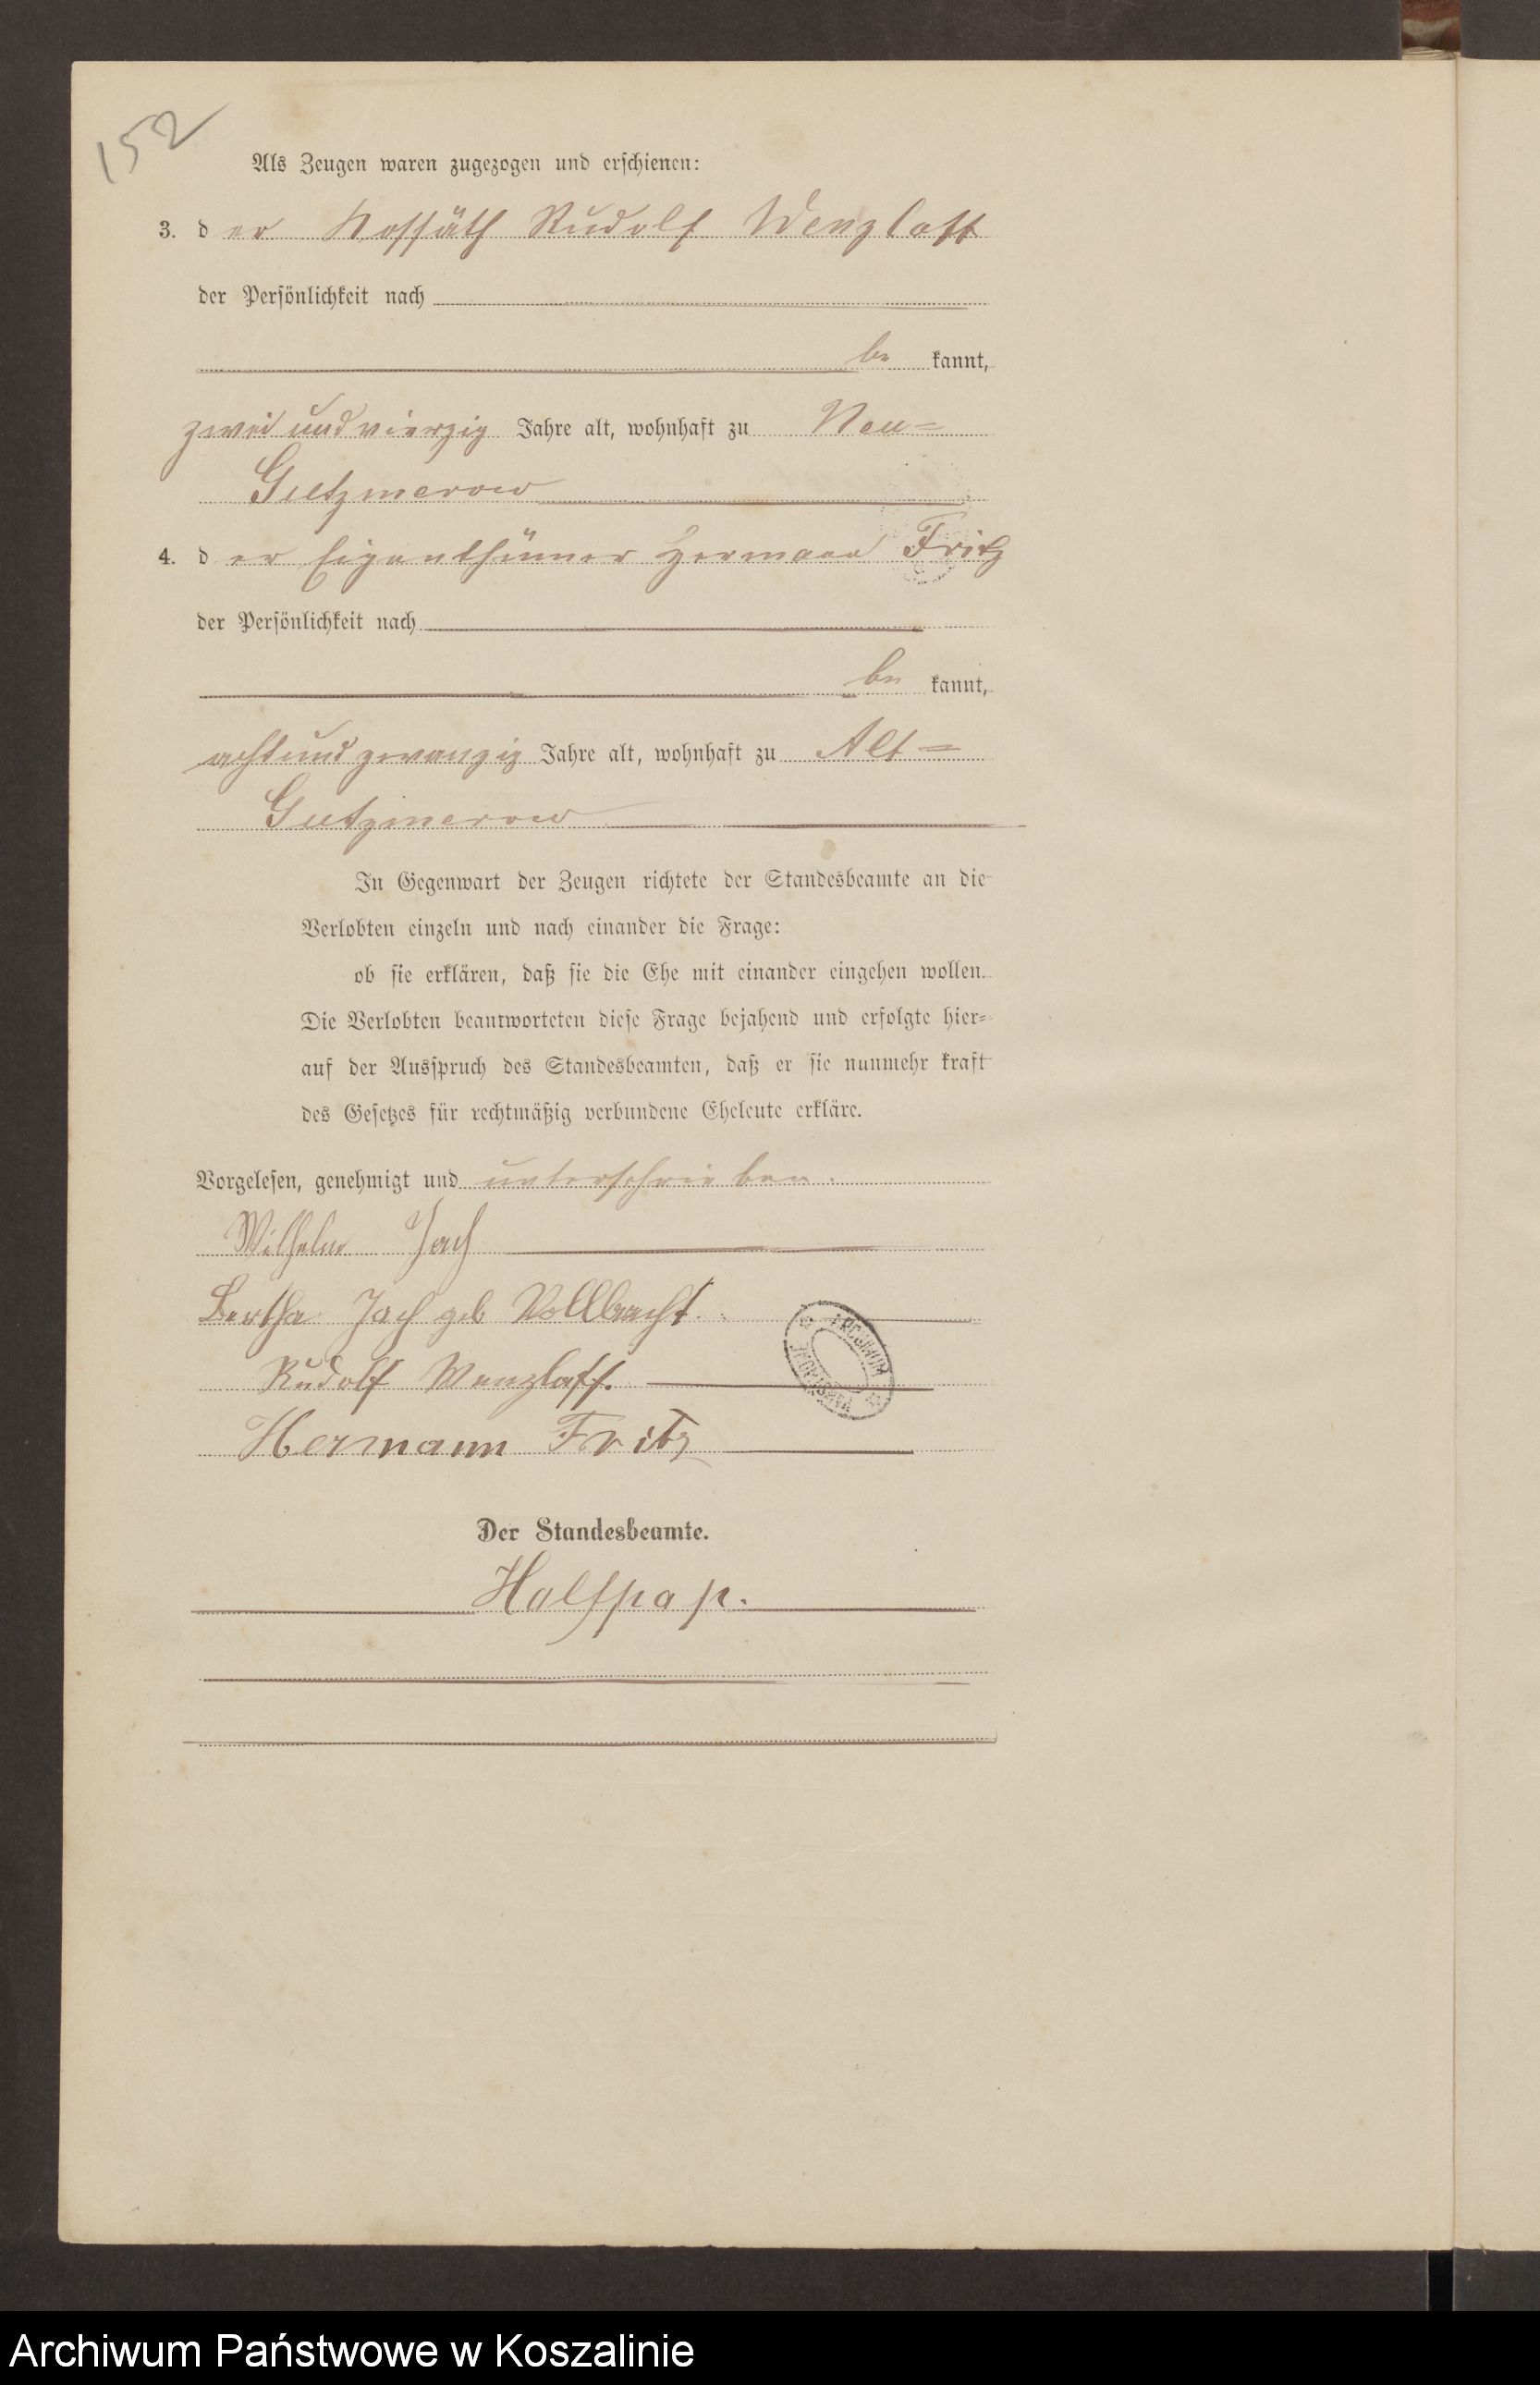 152
Als Zeugen waren zugezogen und erschienen:
3. der Kossäth Rudolf Wenzlaff
der Persönlichkeit nach
be kannt,
zwei und vierzig Jahre alt, wohnhaft zu Neu=
Gutzmerow
4. der Eigenthümer Hermann Fritz
der Persönlichkeit nach
be kannt,
achtundzwanzig Jahre alt, wohnhaft zu Alt=
Gutzmerow
In Gegenwart der Zeugen richtete der Standesbeamte an die
Verlobten einzeln und nach einander die Frage:
ob sie erklären, daß sie die Ehe mit einander eingehen wollen.
Die Verlobten beantworteten diese Frage bejahend und erfolgte hier=
auf der Ausspruch des Standesbeamten, daß er sie nunmehr kraft
des Gesetzes für rechtmäßig verbundene Eheleute erkläre.
Vorgelesen, genehmigt und unterschrieben.
Wilhelm Jach
Bertha Jach geb Vollbracht.
Rudolf Wenzlaff.
Hermann Fritz
Der Standesbeamte.
Halfpap.
Archiwum Państwowe w Koszalinie